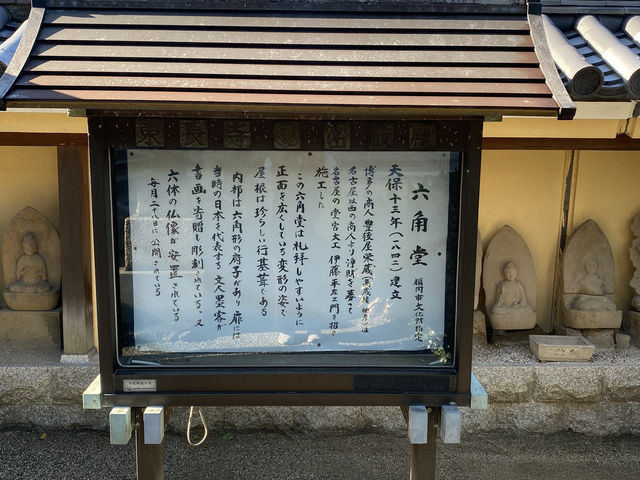 六角堂 福岡市文化財指定
天保十三年(一八四二)建立
博多の商人豊後屋栄蔵(萬歳楼始発)は
名古屋以西の商人より浄財を募って
名古屋の堂宮大工 伊藤平左エ門を招き
施工した
この六角堂は礼拝しやすいように
正面を広くしている変形の姿で
屋根は珍らしい行基葺である
内部は六角形の廚子があり扉には
当時の日本を代表する文人墨客が
書画を寄贈し彫刻されている。又
六体の仏像が安置されている
毎月二十八日に公開されている